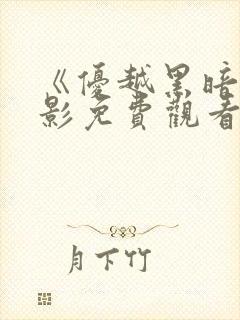 《優越黑暗
影免費觀看
月下竹